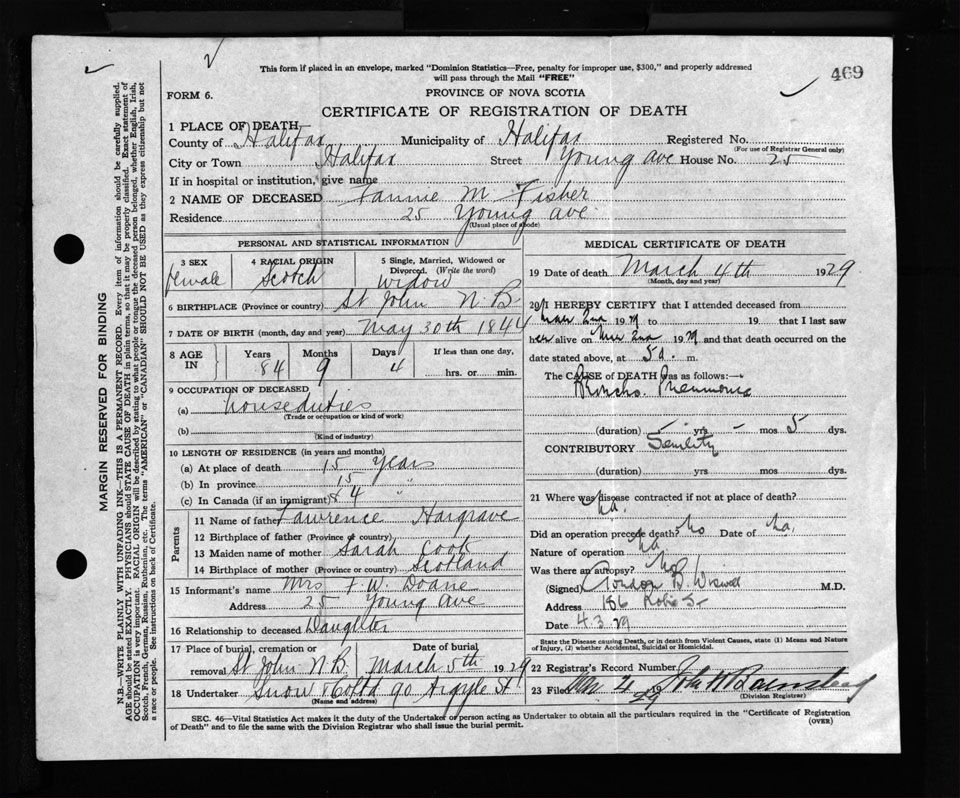 469
This form if placed in an envelope, marked "Dominion Statistics—Free, penalty for improper use, $300," and properly addressed
will pass through the Mail "FREE"
FORM 6.
PROVINCE OF NOVA SCOTIA
CERTIFICATE OF REGISTRATION OF DEATH
1 PLACE OF DEATH
County of Halifax Municipality of Halifax Registered No.
(For use of Registrar General only)
City or Town Halifax Street Young Ave House No. 25
If in hospital or institution, give name
2 NAME OF DECEASED Fannie M Fisher
Residence 25 Young ave
(Usual place of abode)
PERSONAL AND STATISTICAL INFORMATION
3 SEX 4 RACIAL ORIGIN 5 Single, Married, Widowed or
Divorced. (Write the word)
female Scotch Widow
6 BIRTHPLACE (Province or country) St John N. B
7 DATE OF BIRTH (month, day and year) May 30th 1844
8 AGE IN Years Months Days If less than one day,
84 9 4 hrs. or min.
9 OCCUPATION OF DECEASED
(a) house duties
(Trade or occupation or kind of work)
(b)
(Kind of industry)
10 LENGTH OF RESIDENCE (in years and months)
(a) At place of death 15 years
(b) In province 15 "
(c) In Canada (if an immigrant) 84 "
Parents
11 Name of father Lawrence Hargrave
12 Birthplace of father (Province or country)
13 Maiden name of mother Sarah Cook
14 Birthplace of mother (Province or country) Scotland
15 Informant's name Mrs F. W. Doane
Address 25 Young Ave
16 Relationship to deceased Daughter
17 Place of burial, cremation or Date of burial
removal St John N.B. March 5th 1929
18 Undertaker Snow & Co Ltd 90 Argyle St
(Name and address)
MEDICAL CERTIFICATE OF DEATH
19 Date of death March 4th 1929
(Month, day and year)
20 I HEREBY CERTIFY that I attended deceased from
Mar 2nd 1929 to 19 that I last saw
her alive on Mar 2nd 1929 and that death occurred on the
date stated above, at 5 a. m.
The CAUSE of DEATH was as follows:—
Broncho. Pneumonia
(duration) - yrs - mos 5 dys.
CONTRIBUTORY Senility
(duration) yrs mos dys.
21 Where was disease contracted if not at place of death?
na.
Did an operation precede death? no Date of na.
Nature of operation na
Was there an autopsy? no
(Signed) B. Wiswell M.D.
Address 186 Robie St
Date 4.3.29
State the Disease causing Death, or in death from Violent Causes, state (1) Means and Nature
of Injury, (2) whether Accidental, Suicidal or Homicidal.
22 Registrar's Record Number
23 Filed Mar 4 1929 John
(Division Registrar)
SEC. 46—Vital Statistics Act makes it the duty of the Undertaker or person acting as Undertaker to obtain all the particulars required in the "Certificate of Registration
of Death" and to file the same with the Division Registrar who shall issue the burial permit. (OVER)
MARGIN RESERVED FOR BINDING
N.B.—WRITE PLAINLY WITH UNFADING INK—THIS IS A PERMANENT RECORD. Every item of information should be carefully supplied.
AGE should be stated EXACTLY. PHYSICIANS should STATE CAUSE OF DEATH in plain terms, so that it may be properly classified. Exact statement of
OCCUPATION is very important. RACIAL ORIGIN will be described by stating to what people or tongue the deceased person belonged, whether English, Irish,
Scotch, French, German, Russian, Ruthenian, etc. The terms "AMERICAN" or "CANADIAN" SHOULD NOT BE USED as they express citizenship but not
a race or people. See instructions on back of Certificate.